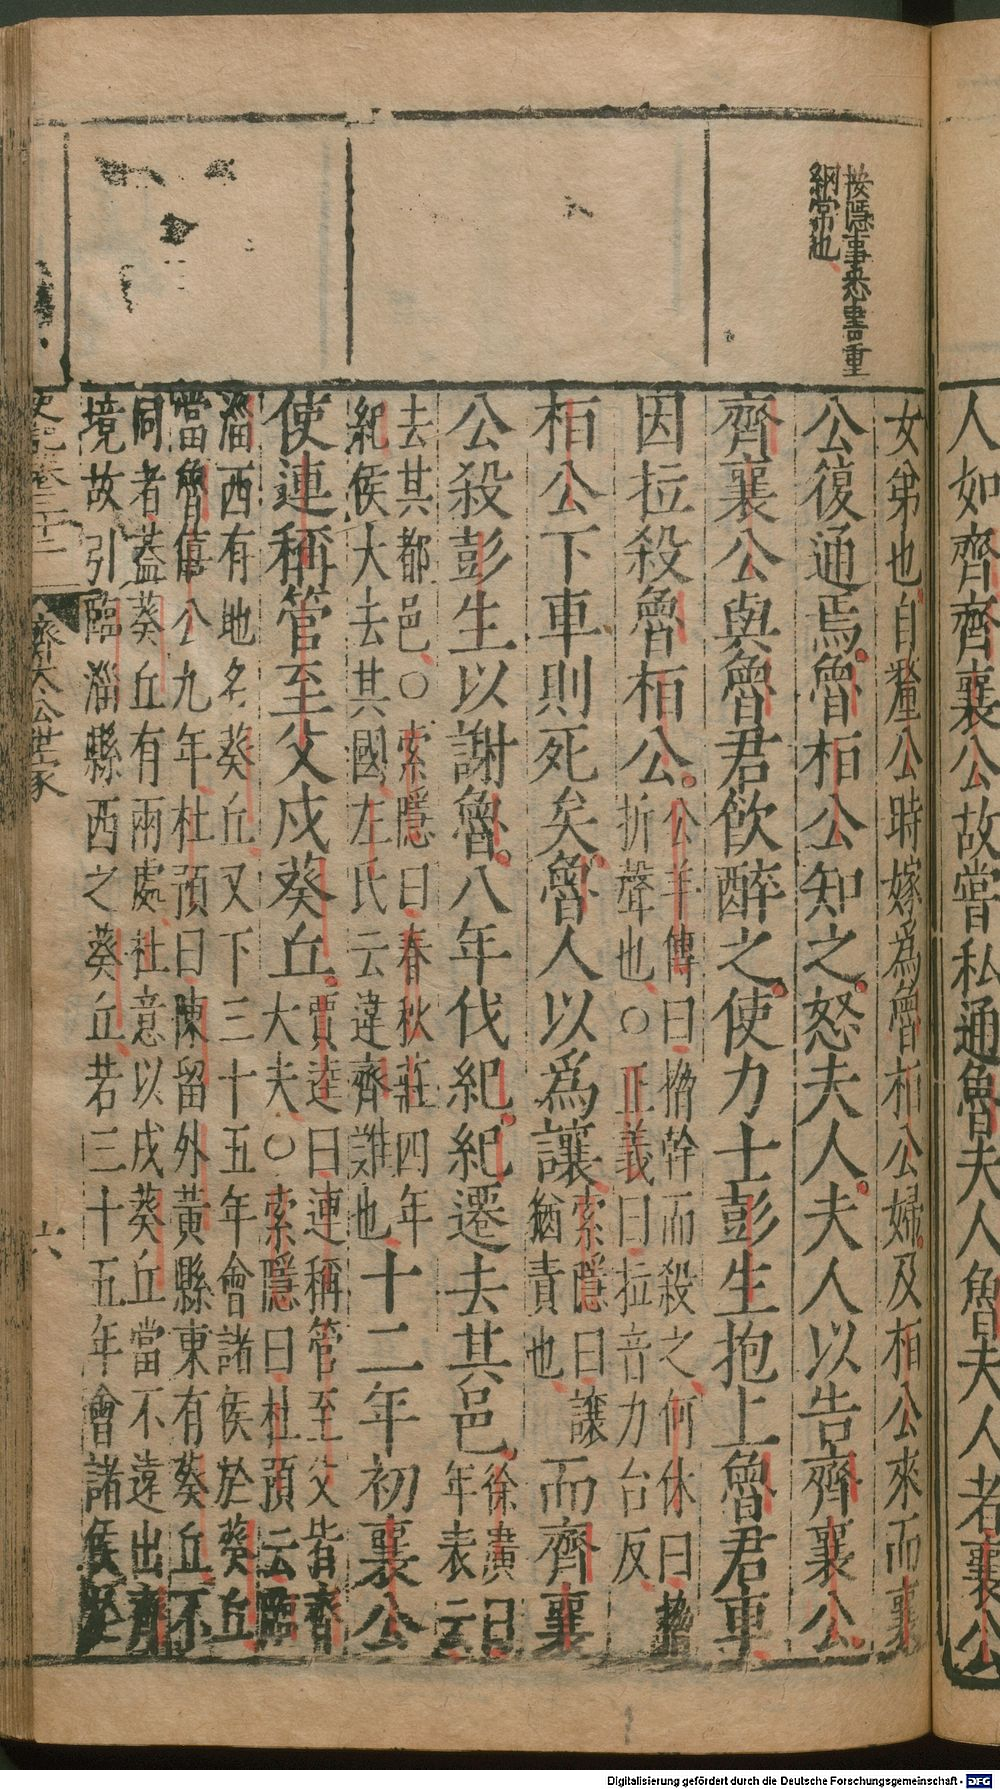 人如齊齊襄公故嘗私通魯夫人魯夫人者襄公
按隱事悉書重
綱常也
女弟也自釐公時嫁爲魯桓公婦及桓公來而襄
公復通焉魯桓公知之怒夫人夫人以告齊襄公
齊襄公與魯君飲醉之使力士彭生抱上魯君車
因拉殺魯桓公
公羊傳曰搚幹而殺之何休曰搚
折聲也○正義曰拉音力台反
桓公下車則死矣魯人以爲讓
索隱曰讓
猶責也
而齊襄
公殺彭生以謝魯八年伐紀紀遷去其邑
徐廣曰
年表云
去其都邑○索隱曰春秋莊四年
紀侯大去其國左氏云違齊難也
十二年初襄公
使連稱管至父戍葵丘
賈逵曰連稱管至父皆齊
大夫○索隱曰杜預云臨
淄西有地名葵丘又下三十五年會諸侯於葵丘
當魯僖公九年杜預曰陳留外黃縣東有葵丘不
同者蓋葵丘有兩處杜意以戍葵丘當不遠出齊
境故引臨淄縣西之葵丘若三十五年會諸侯於
史記卷三十二
齊太公世家
六
Digitalisierung gefördert durch die Deutsche Forschungsgemeinschaft - DFG